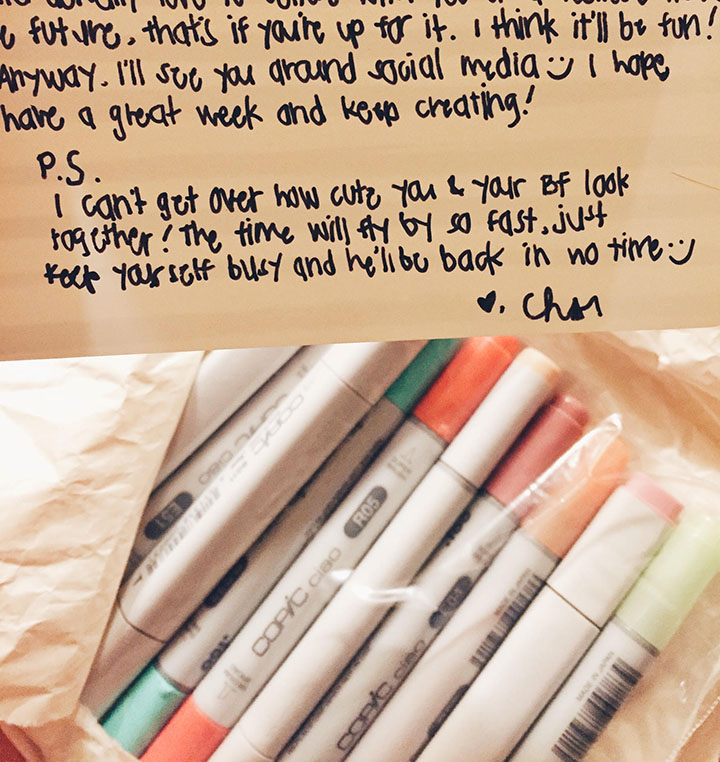 e future, that's if you're up for it. I think it'll be fun!
Anyway. I'll see you around social media I hope
have a great week and keep creating!
P.S.
I can't get over how cute you & your BF look
together! The time will fly by so fast, just
keep yourself busy and he'll be back in no time
♥, Char
E51
COPIC ciao
R05
COPIC ciao
MADE IN JAPAN
COPIC ciao
MADE IN JAPAN